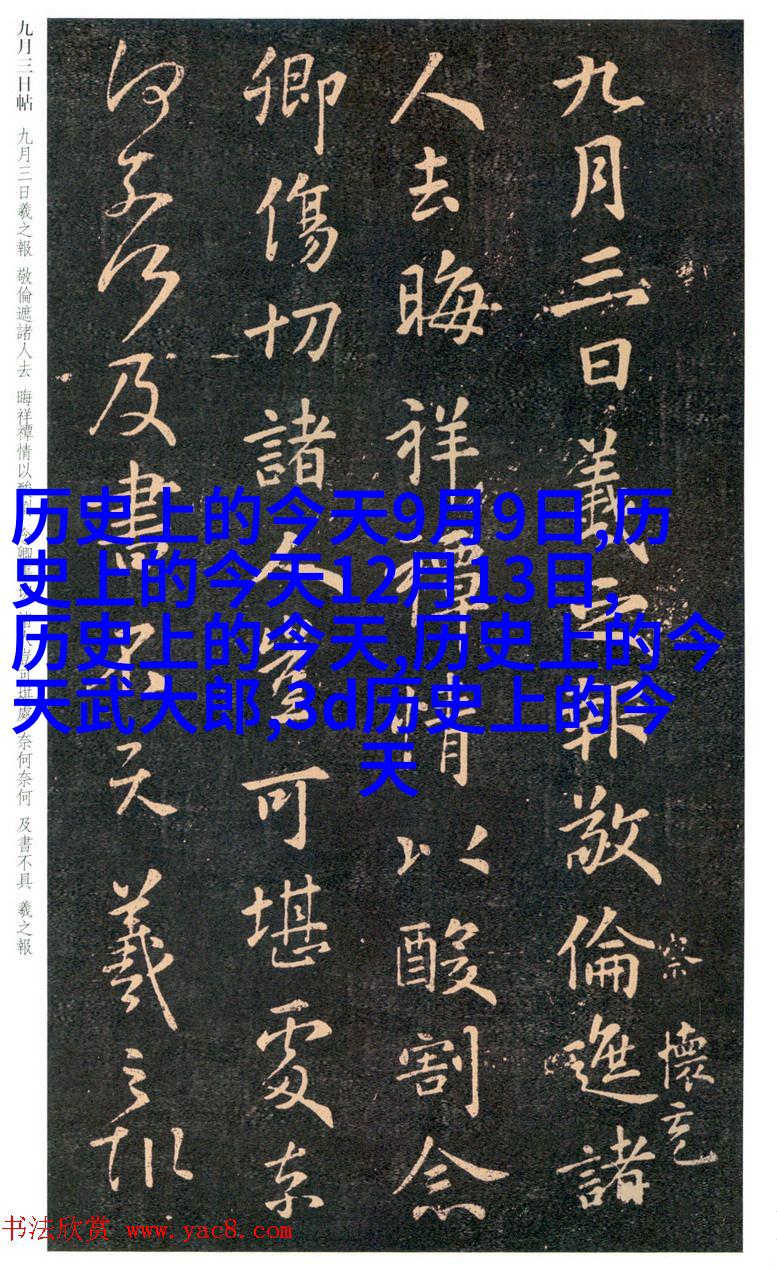 九月三日羲之報敬倫遮諸
察 懷充
人去晦祥禫情以酸割念
卿傷切諸人豈可堪處奈
何奈何及書不具羲之報
九月三日帖 九月三日羲之報 敬倫遮諸人去 晦祥禫情以酸割念卿傷切諸人豈可堪處 奈何奈何 及書不具 羲之報
历史上的今天9月9日,历
史上的今天12月13日,
历史上的今天,历史上的今
天武大郎,3d历史上的今
天
书法欣赏 www.yac8.com